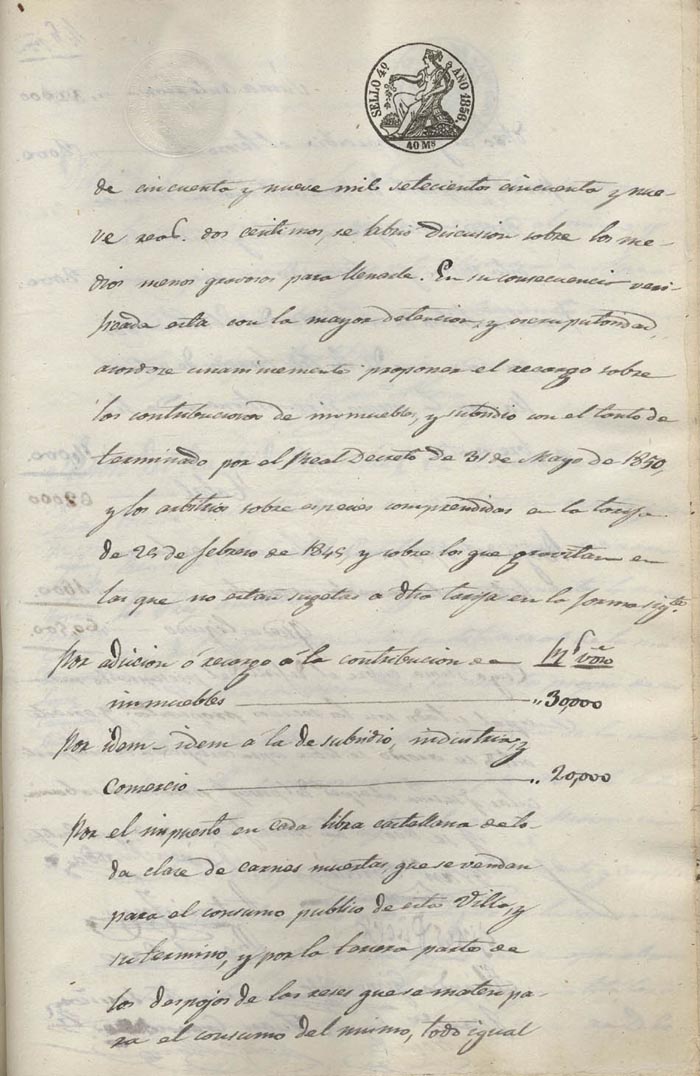 SELLO 4º AÑO 1856.
40 Ms
de cincuenta y nueve mil setecientos cincuenta y nue-
ve reas. dos centimos, se abrió discusion sobre los me-
dios menos gravosos para llenarla. En su consecuencia veri-
ficada esta con la mayor detencion, y escrupulosidad,
acordose unanimemente proponer el recargo sobre
las contribuciones de inmuebles, y subsidio con el tanto de
terminado por el Real Decreto de 31 de Mayo de 1850,
y los arbitrios sobre especies comprendidas en la tarifa
de 25 de febrero de 1848, y sobre los que gravitan en
las que no estan sugetas a dha tarifa en la forma sigte
Por adicion ó recargo á la contribucion de
inmuebles ,, 30,000
Por idem - idem á la de subsidio, industria, y
Comercio ,, 20,000
Por el impuesto en cada libra castellana de to-
da clase de carnes muertas, que se vendan
para el consumo publico de esta Villa, y
su termino, y por la tercera parte de
los despojos de las reses que se maten pa-
ra el consumo del mismo, todo igual